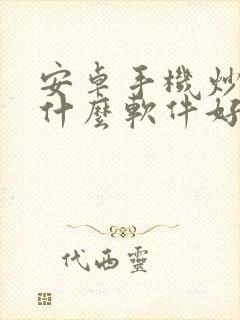 安卓手機炒
什麼軟件好
代西靈